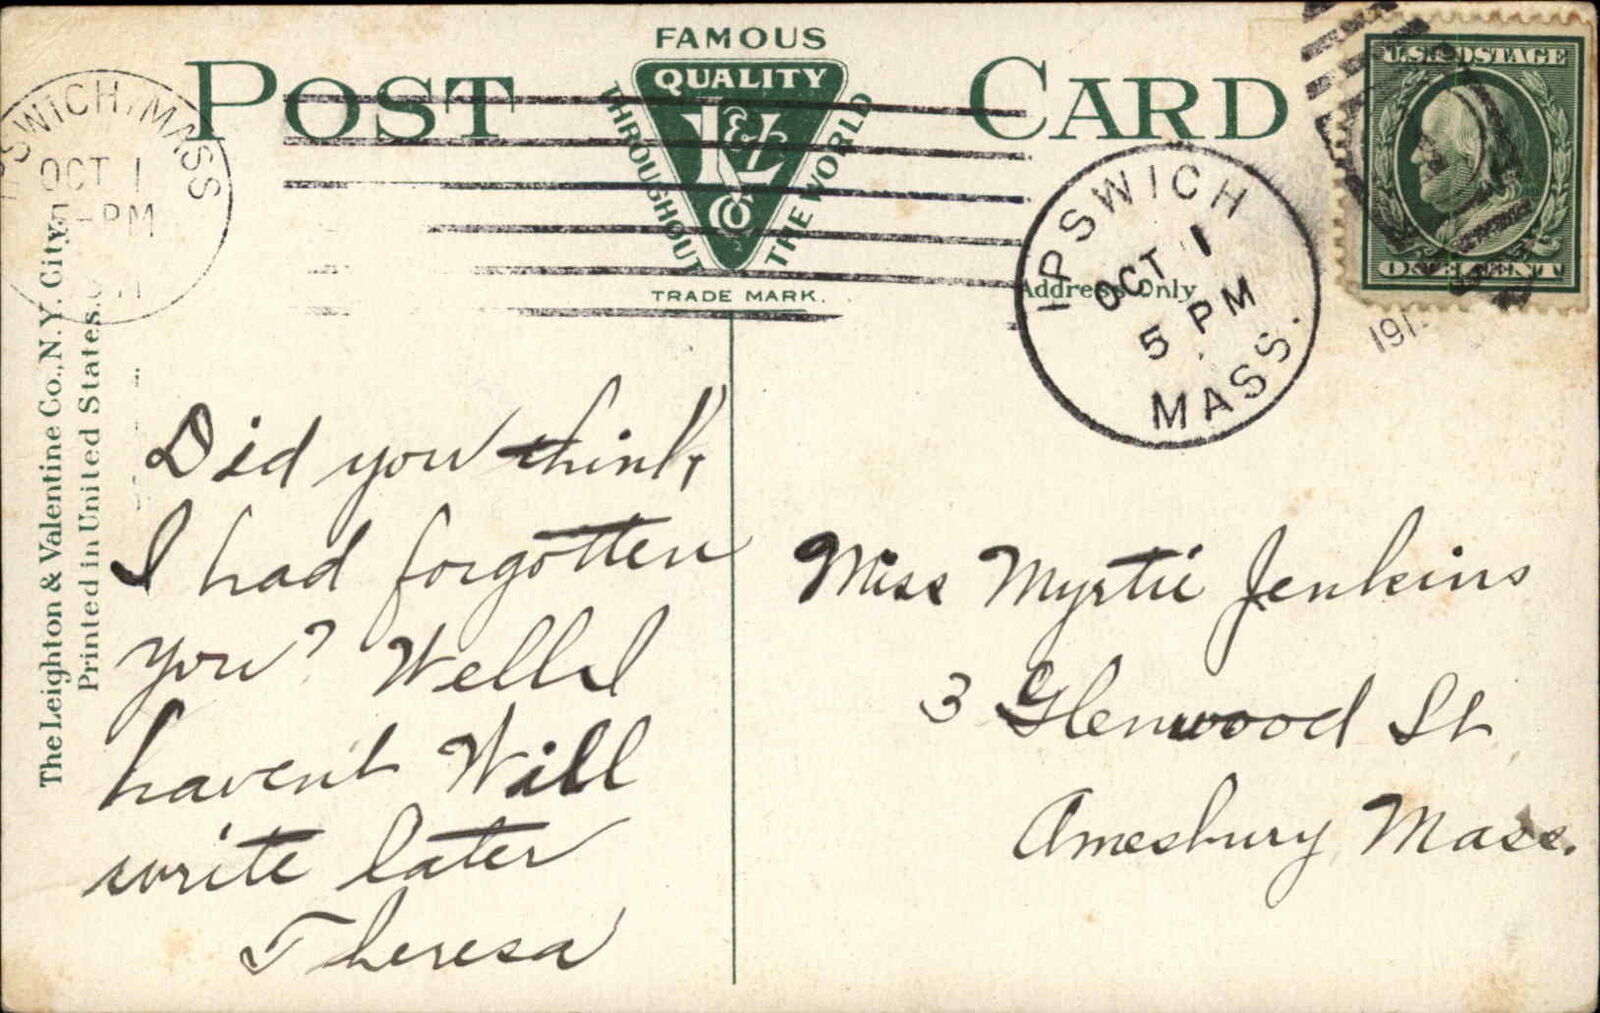 FAMOUS
POST CARD
QUALITY
L & V
CO
THROUGHOUT THE WORLD
TRADE MARK.
Address Only
U.S. POSTAGE
ONE CENT
IPSWICH, MASS
OCT 1
5-PM
IPSWICH
OCT 1
5 PM
MASS.
191
The Leighton & Valentine Co., N.Y. City.
Printed in United States.
Did you think
I had forgotten
you? Well I
havent Will
write later
Theresa
Miss Myrtie Jenkins
3 Glenwood St
Amesbury Mass.